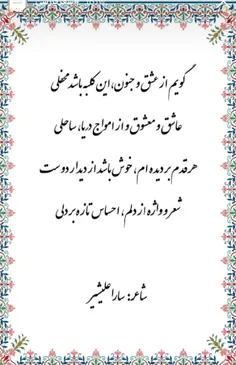 گویم از عشق و جنون، این کلبه باشد محفلی
عاشق و معشوق و از امواج دریا، ساحلی
هر قدم بر دیده ام، خوش باشد از دیدار دوست
شعر و واژه از دلم، احساس تازه بر دلی
شاعر: سارا علیشیر